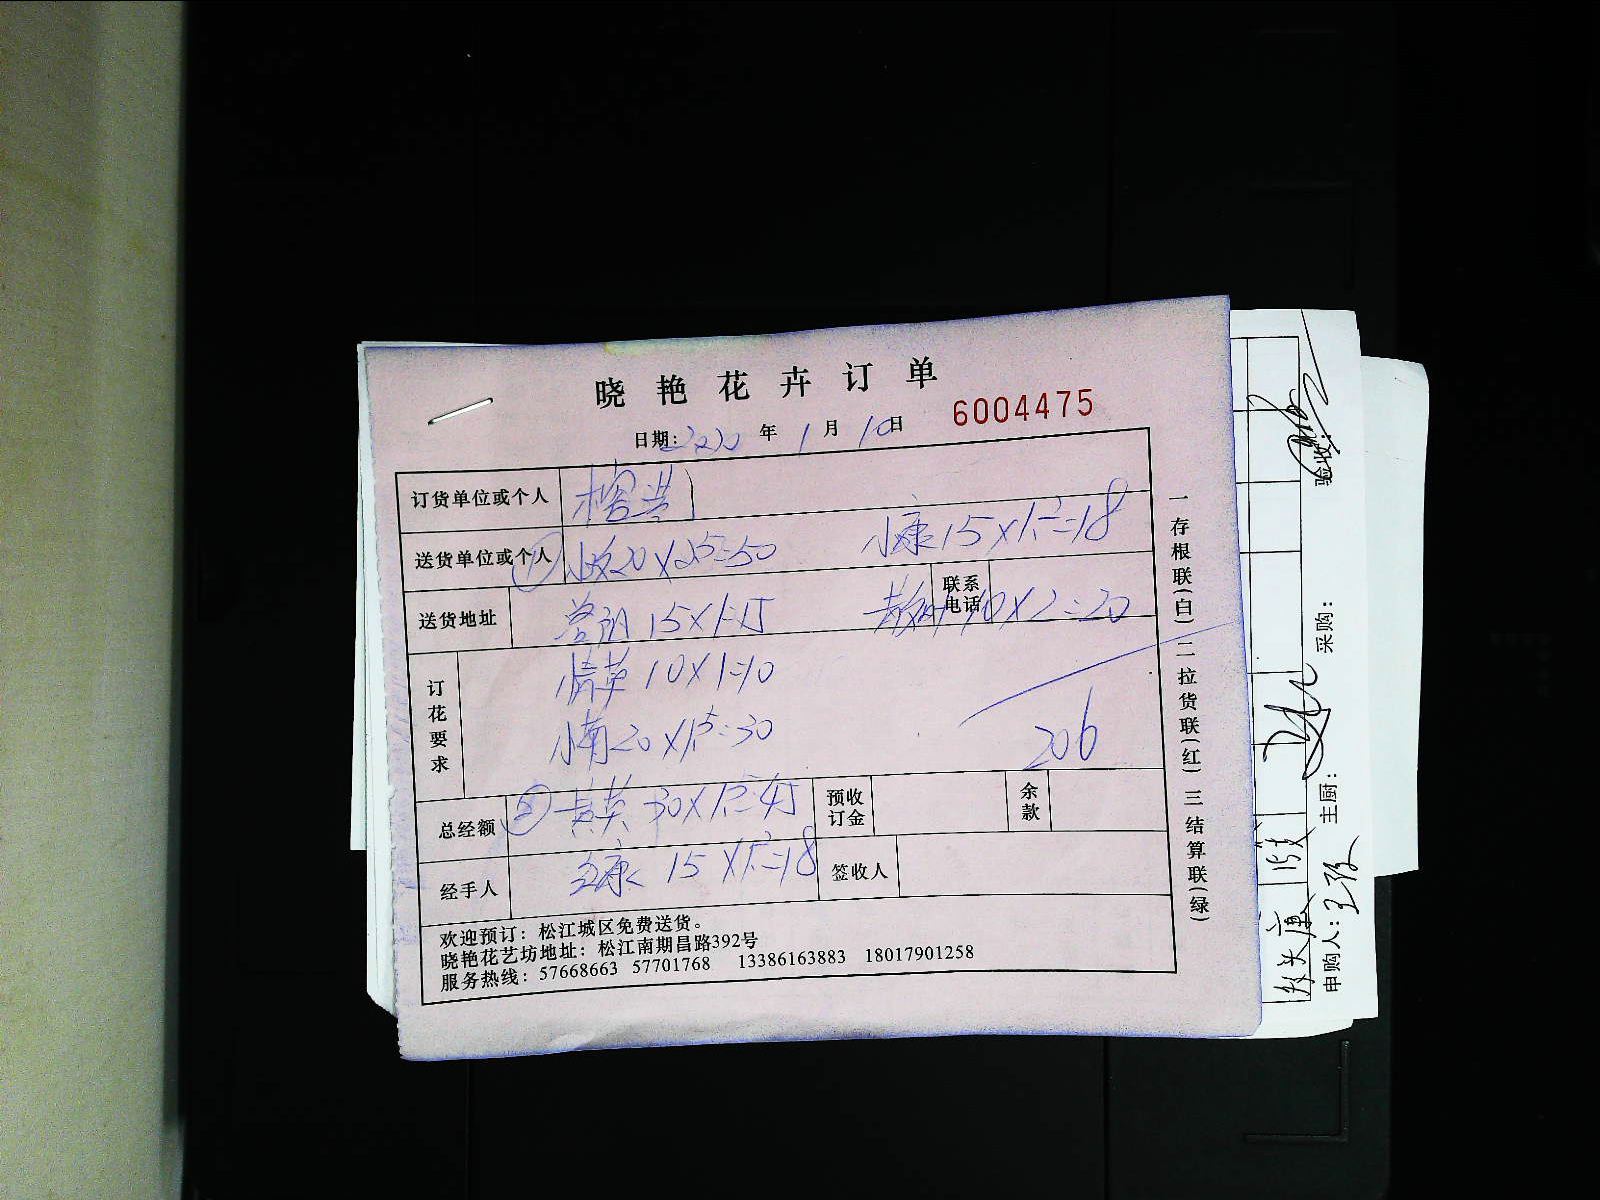 晓艳花卉订单
6004475
日期: 2020 年 1 月 10 日
订货单位或个人
送货单位或个人 ① 小玫 20×25=50 小康 15×1.2=18
送货地址 15×1=15 联系电话 10×2=20
订花要求 10×1=10
小菊 20×1.5=30
206
总经额 ② 黄英 30×1.5=45 预收订金 余款
经手人 康 15×1.2=18 签收人
欢迎预订：松江城区免费送货。
晓艳花艺坊地址：松江南期昌路392号
服务热线：57668663 57701768 13386163883 18017901258
一存根联(白) 二拉货联(红) 三结算联(绿)
验收:
采购:
主厨:
申购人: